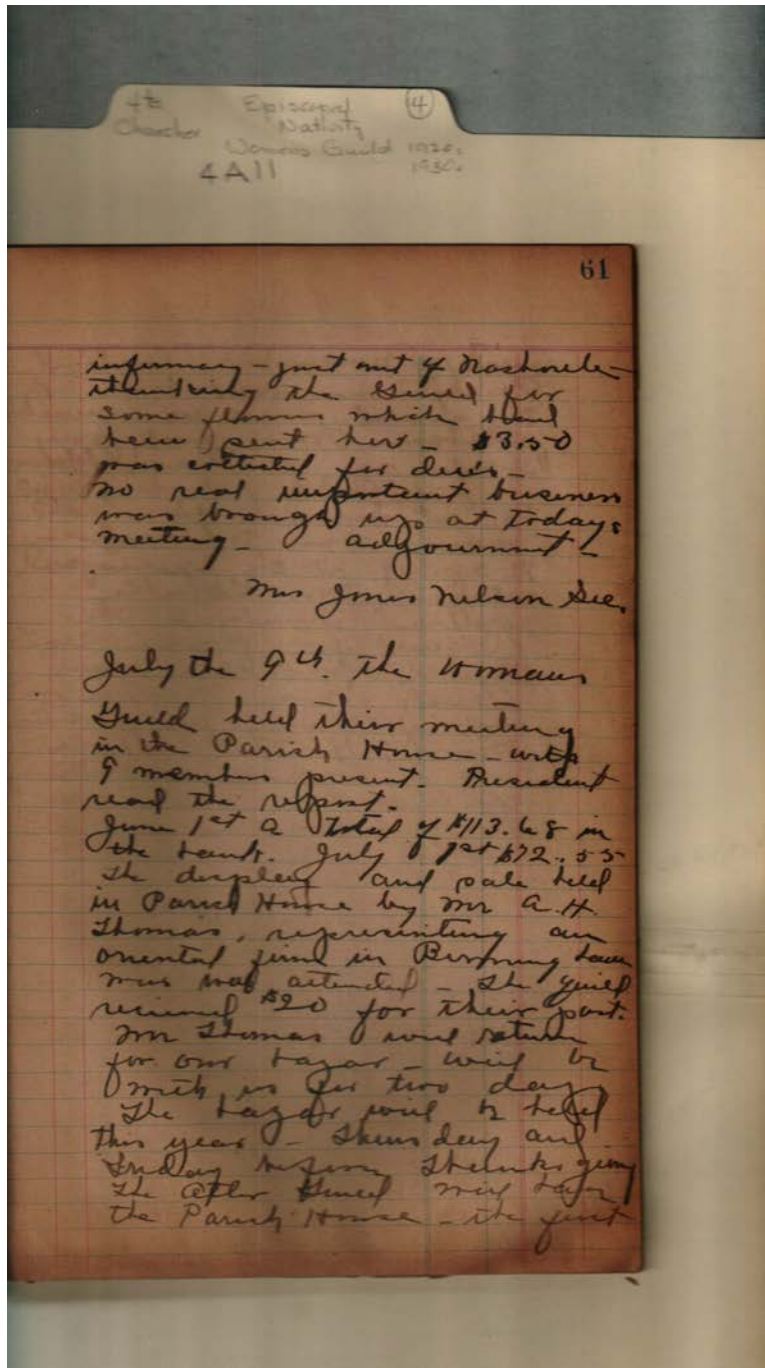 4th Episcopal (4)
Churches Nativity
Womens Guild 1920s
4A11 1930s
61
infirmary - just out of Nashville -
thanking the Guild for
some flowers which had
been sent her - $3.50
was collected for dues -
no real important business
was brough up at todays
meeting - adjournment -
Mrs Jones Nelson Sec.
July the 9th. the Womans
Guild held their meeting
in the Parish House - with
9 members present. President
read the report.
June 1st a total of $113.68 in
the bank. July 1st $72.55
The display and sale held
in Parish House by Mr A. H.
Thomas, representing an
oriental firm in Birmingham
was well attended - The guild
recieved $20 for their part.
Mr Thomas will return
for our bazar - will be
with us for two days
The bazar will be held
this year - Thursday and
Friday before Thanksgiving
The Alter Guild will have
the Parish House - the first